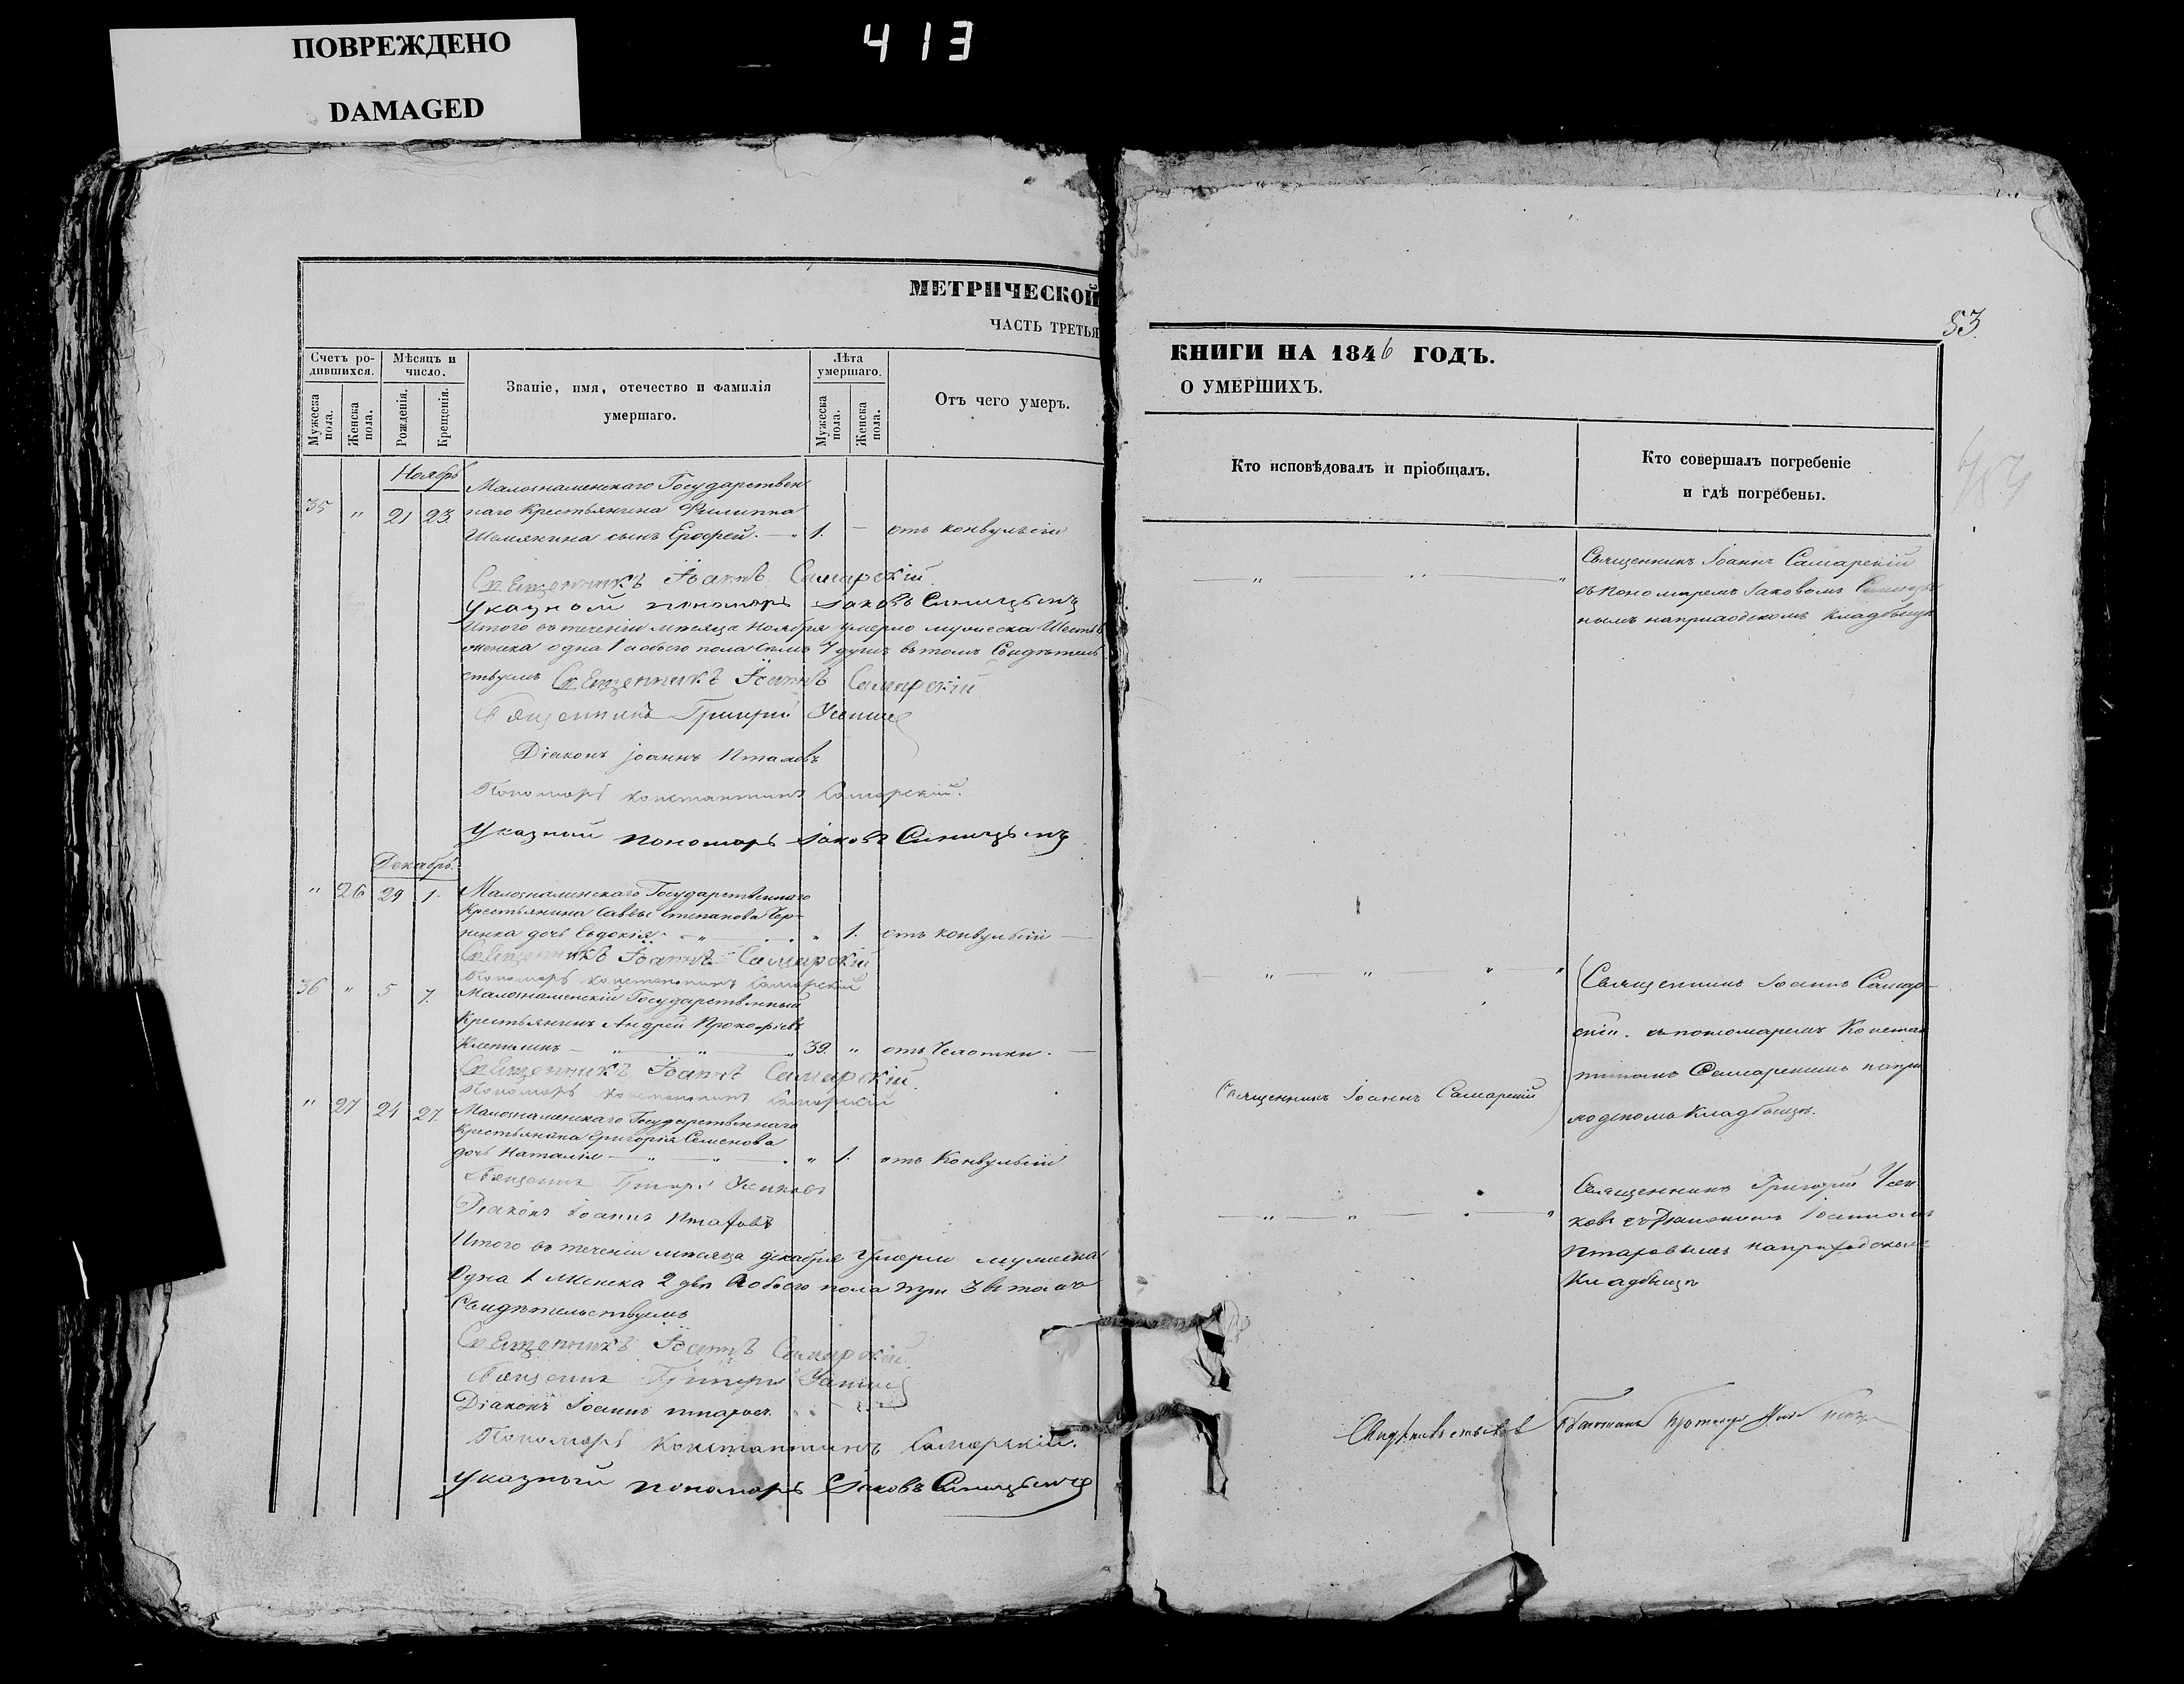 ПОВРЕЖДЕНО
DAMAGED
413
МЕТРИЧЕСКОЙ
ЧАСТЬ ТРЕТЬЯ
Счетъ ро-
дившихся.
Мѣсяцъ и
число.
Званіе, имя, отечество и фамилія
умершаго.
Лѣта
умершаго.
Отъ чего умеръ.
Мужеска пола.
Женска пола.
Рожденія.
Крещенія.
Мужеска пола.
Женска пола.
Ноябрь
Малознаменскаго Государствен
35 " 21 23. наго Крестьянина Филиппа
Шемякина сынъ Ерофей. — " 1. — отъ конвульсіи
Священникъ Іоаннъ Самарскій.
Указной пономарь Іаковъ Синицынъ
Итого въ теченіи мѣсяца Ноября умерло мужеска Шесть 6
женска одна 1 а обоего пола семь 7 душъ въ томъ Свидѣтель
ствуемъ Священникъ Іоаннъ Самарскій
Священникъ Григорій
Діаконъ іоаннъ
Пономарь Константинъ Самарскій.
Указный пономарь Іаковъ Синицынъ
Декабрь.
" 26 29 1. Малознаменскаго Государственнаго
Крестьянина Саввы Степанова Чер-
дочь Евдокія — " " 1. отъ конвульсіи —
Священникъ Іоаннъ Самарскій
Пономарь Константинъ Самарскій
36 " 5 7. Малознаменскій Государственный
Крестьянинъ Андрей Прокофіевъ
— " — " — " 39. " отъ Чахотки. —
Священникъ Іоаннъ Самарскій.
Пономарь Константинъ Самарскій
" 27 24 27. Малознаменскаго Государственнаго
Крестьянина Григорія Семенова
дочь Наталія — " — " — " 1. отъ Конвульсіи
Священникъ Григорій
Діаконъ Іоаннъ
Итого въ теченіи мѣсяца декабря умерли мужеска
Одна 1. женска 2 двѣ а обоего пола три 3 въ томъ
Свидѣтельствуемъ
Священникъ Іоаннъ Самарскій.
Священникъ Григорій
Діаконъ Іоаннъ
Пономарь Константинъ Самарскій.
Указный пономарь Іаковъ Синицынъ
53.
КНИГИ НА 1846 ГОДЪ.
О УМЕРШИХЪ.
Кто исповѣдовалъ и пріобщалъ.
Кто совершалъ погребеніе
и гдѣ погребены.
Священникъ Іоаннъ Самарскій
съ пономаремъ Іаковомъ Синицы
нымъ на приходскомъ кладбищѣ
Священникъ Іоаннъ Самар-
скій. съ пономаремъ Констан
тиномъ Самарскимъ на при
ходскомъ Кладбищѣ.
Священникъ Іоаннъ Самарскій
Священникъ Григорій
съ Діакономъ Іоанномъ
на приходскомъ
Кладбищѣ